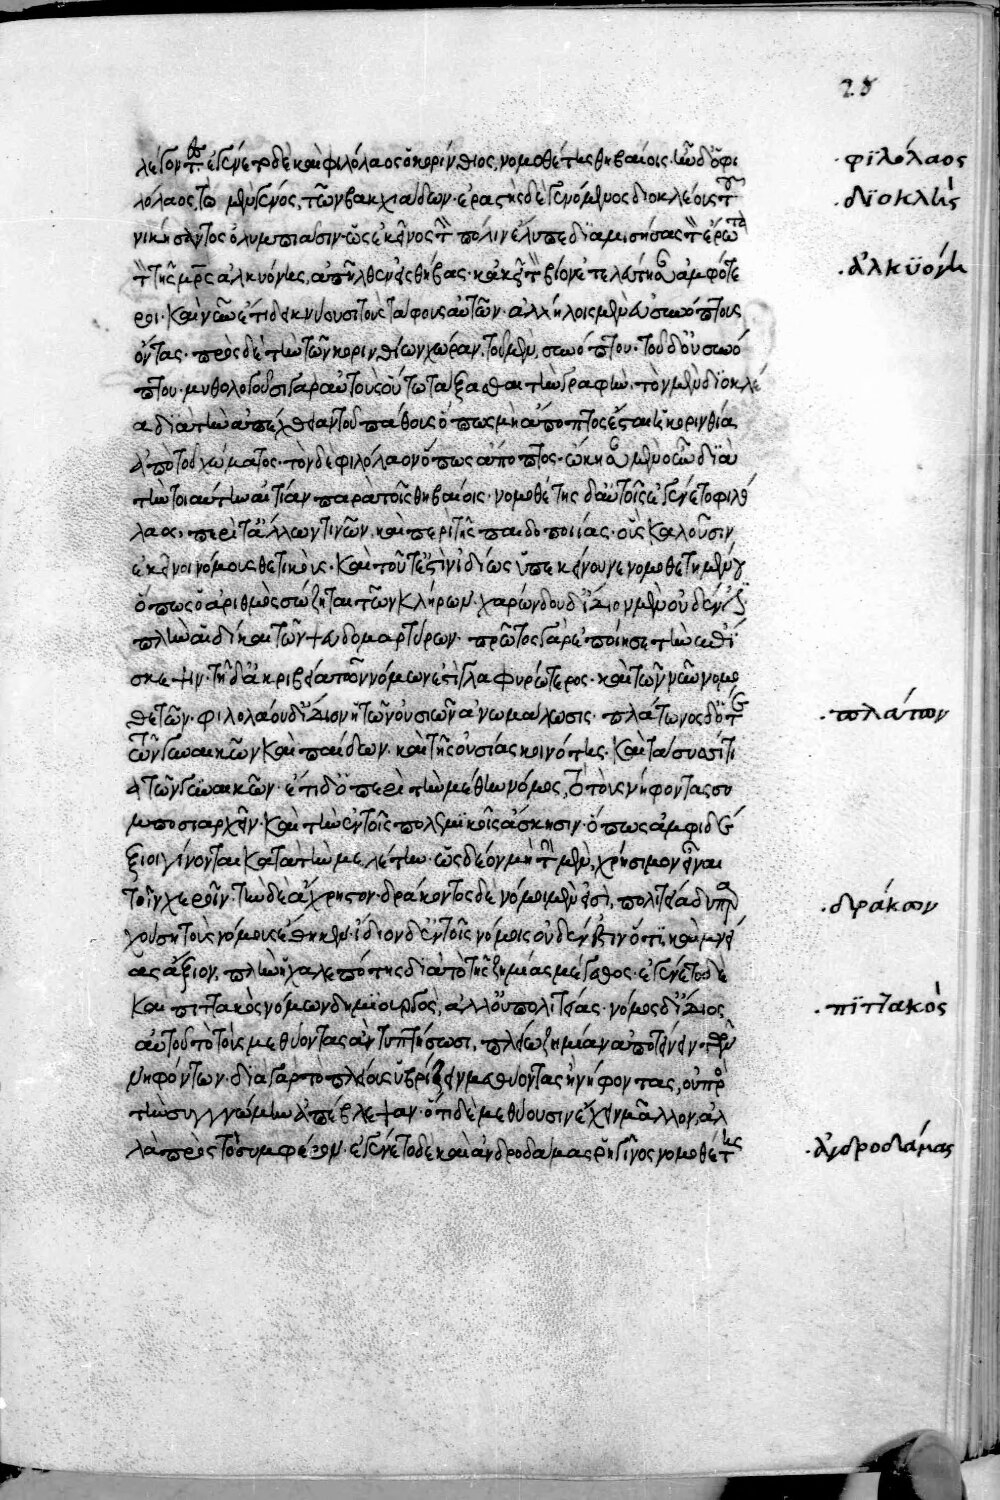 28
λέγοντες. ἐγένετο δὲ καὶ φιλόλαος ὁ κορίνθιος, νομοθέτης θηβαίοις· ἦν δ' ὁ φι
φϊλόλαος
λόλαος, τὸ μὲν γένος, τῶν βακχιαδῶν· ἐραστὴς δὲ γενόμενος διοκλέους τοῦ
δϊοκλῆς
νικήσαντος ὀλυμπίασιν· ὡς ἐκεῖνος τὴν πόλιν ἔλιπε διαμισήσας τὸν ἔρωτα
τὸν τῆς μρ̅ς ἀλκυόνης, ἀπῆλθεν εἰς θήβας· κἀκεῖ τὸν βίον ἐτελεύτησαν ἀμφότε
ἀλκϋόνη
ροι· καὶ νῦν ἔτι δεικνύουσι τοὺς τάφους αὐτῶν· ἀλλήλοις μὲν εὐσυνόπτους
ὄντας· πρὸς δὲ τὴν τῶν κορινθίων χώραν, τοῦ μὲν, συνόπτου· τοῦ δ' οὐ συνό
πτου· μυθολογοῦσι γὰρ αὐτοὺς οὕτω τάξασθαι τὴν ταφὴν, τὸν μὲν διοκλέ
α διὰ τὴν ἀπέχθειαν τοῦ πάθους ὅπως μὴ ἄποπτος ἔσται ἡ κορινθία
ἀπὸ τοῦ χώματος· τὸν δὲ φιλόλαον ὅπως ἄποπτος· ᾤκησαν μὲν οὖν διὰ
τὴν τοιαύτην αἰτίαν παρὰ τοῖς θηβαίοις· νομοθέτης δ' αὐτοῖς ἐγένετο φιλό
λαος, περί τ' ἄλλων τινῶν, καὶ περὶ τῆς παιδοποιίας· οὓς καλοῦσιν
ἐκεῖνοι νόμους θετικούς· καὶ τοῦτ' ἐστὶν ἰδίως ὑπ' ἐκείνου νενομοθετημένον
ὅπως ὁ ἀριθμὸς σώζηται τῶν κλήρων· χαρώνδου δ' ἴδιον μὲν οὐδέν ἐστι
πλὴν αἱ δίκαι τῶν ψευδομαρτύρων· πρῶτος γὰρ ἐποίησε τὴν ἐπί
σκεψιν· τῇ δ' ἀκριβείᾳ τῶν νόμων ἐστὶ γλαφυρώτερος· καὶ τῶν νῦν νομο
θετῶν· φιλολάου δ' ἴδιον ἡ τῶν οὐσιῶν ἀνωμάλωσις· πλάτωνος δ' ἥ τε
πλάτων
τῶν γυναικῶν καὶ παίδων· καὶ τῆς οὐσίας κοινότης· καὶ τὰ συσσίτι
α τῶν γυναικῶν· ἔτι δ' ὁ περὶ τὴν μέθην νόμος, τὸ τοὺς νήφοντας συ
μποσιαρχεῖν· καὶ τὴν ἐν τοῖς πολεμικοῖς ἄσκησιν· ὅπως ἀμφιδέ
ξιοι γίνονται κατὰ τὴν μελέτην· ὡς δέον μὴ τὴν μὲν, χρήσιμον εἶναι
τοῖν χεροῖν· τὴν δὲ ἄχρηστον· δράκοντος δὲ νόμοι μὲν εἰσὶ, πολιτείᾳ δ' ὑπαρ
δράκων
χούσῃ τοὺς νόμους ἔθηκεν· ἴδιον δ' ἐν τοῖς νόμοις οὐδέν ἐστιν ὅτι, καὶ μνεί
ας ἄξιον, πλὴν ἡ χαλεπότης διὰ τὸ τῆς ζημίας μέγεθος· ἐγένετο δὲ
καὶ πιττακὸς νόμων δημιουργὸς, ἀλλ' οὐ πολιτείας· νόμος δ' ἴδιος
πϊττακὸς
αὐτοῦ τὸ τοὺς μεθύοντας ἂν τυπτήσωσι, πλείω ζημίαν ἀποτίνειν τῶν
νηφόντων· διὰ γὰρ τὸ πλείους ὑβρίζειν μεθύοντας ἢ νήφοντας, οὐ πρὸς
τὴν συγγνώμην ἀπέβλεψαν· ὅτι δεῖ μεθύουσιν ἔχειν μᾶλλον, ἀλ
λὰ πρὸς τὸ συμφέρον· ἐγένετο δὲ καὶ ἀνδροδάμας ῥηγῖνος νομοθέτης
ἀνδροδάμας